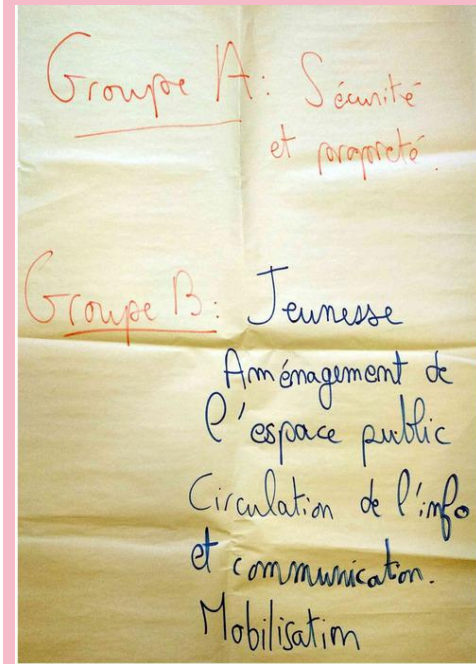 Groupe A: Sécurité
et propreté.
Groupe B: Jeunesse
Aménagement de
l'espace public
Circulation de l'info
et communicaton.
Mobilisation